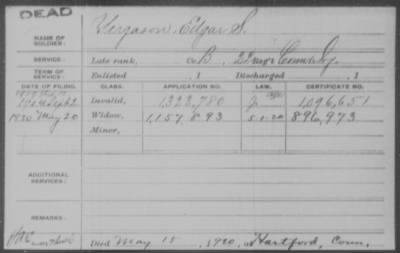 DEAD
NAME OF SOLDIER: Vergason, Edgar S.
SERVICE: Late rank, Co. B, 2d Reg't Conn.
TERM OF SERVICE Enlisted , 1 Discharged , 1
DATE OF FILING. CLASS. APPLICATION NO. LAW. CERTIFICATE NO.
1904 Sept 2 Invalid, 1,323,780 1,096,651
1920 May 20 Widow, 1,157,893 5-1-20 896,973
Minor,
ADDITIONAL SERVICES:
REMARKS:
Died May 15, 1920, at Hartford, Conn.